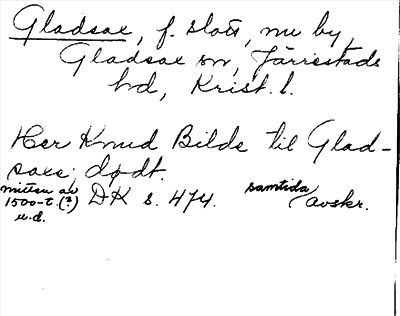 Gladsax, f. slott, nu by,
Gladsax sn, Järrestads
hd, Krist. l.
Her Knud Bilde til Glad-
saxe; dødt.
mitten av
1500-t. (?) DK s. 474. samtida avskr.
u.d.